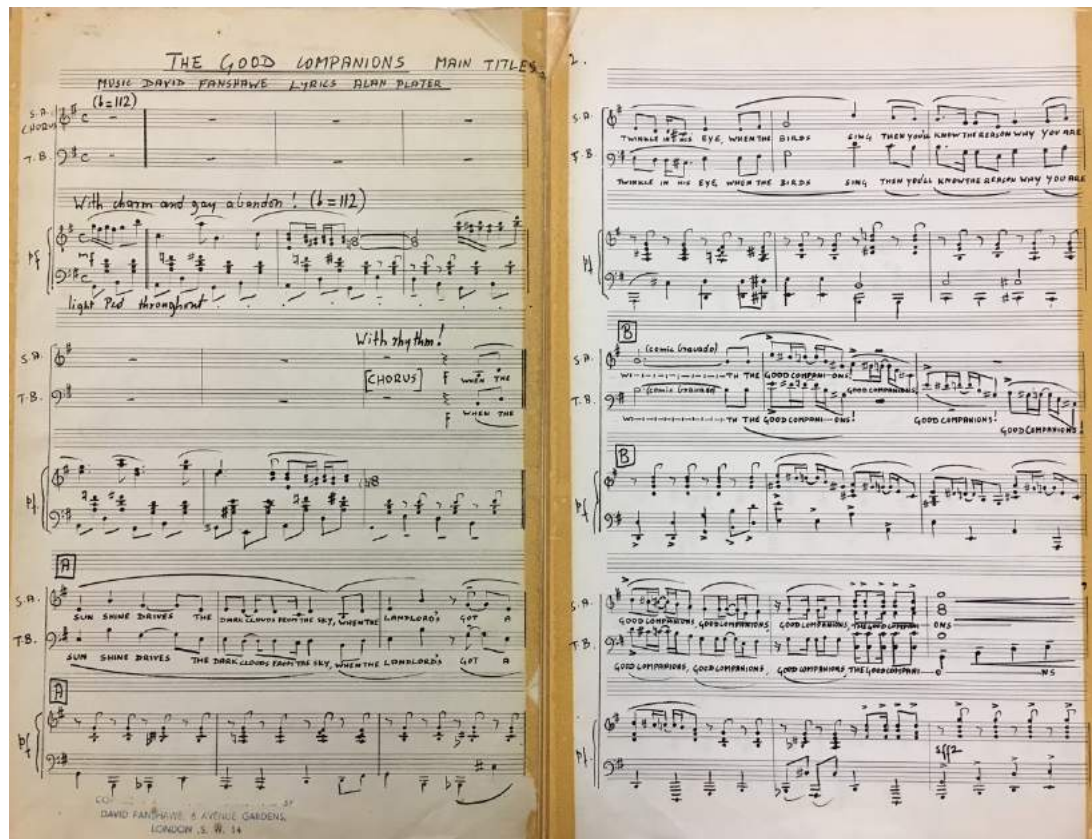 THE GOOD COMPANIONS MAIN TITLES
MUSIC DAVID FANSHAWE LYRICS ALAN PLATER
(♩=112)
S.A.
CHORUS
T.B.
With charm and gay abandon! (♩=112)
Pf
mf
light Ped throughout
With rhythm!
S.A.
[CHORUS] f WHEN THE
T.B.
f WHEN THE
Pf.
A
S.A.
SUN SHINE DRIVES THE DARK CLOUDS FROM THE SKY, WHEN THE LANDLORD'S GOT A
T.B.
SUN SHINE DRIVES THE DARK CLOUDS FROM THE SKY, WHEN THE LANDLORD'S GOT A
A
Pf
DAVID FANSHAWE, 6 AVENUE GARDENS,
LONDON, S. W. 14
2.
S.A.
TWINKLE IN HIS EYE, WHEN THE BIRDS SING THEN YOU'LL KNOW THE REASON WHY YOU ARE
T.B.
TWINKLE IN HIS EYE, WHEN THE BIRDS SING THEN YOU'LL KNOW THE REASON WHY YOU ARE
Pf
B
S.A.
WI-I-I-I-I-I-TH THE GOOD COMPANIONS GOOD COMPANIONS,
T.B.
WI-I-I-I-I-I-TH THE GOOD COMPANI-ONS! GOOD COMPANIONS!
GOOD COMPANIONS!
B
Pf
S.A.
GOOD COMPANIONS, GOOD COMPANIONS, GOOD COMPANIONS, THE GOOD COMPANI-ONS
T.B.
GOOD COMPANIONS, GOOD COMPANIONS, GOOD COMPANIONS, THE GOOD COMPANI-O-NS
Pf.
sffz